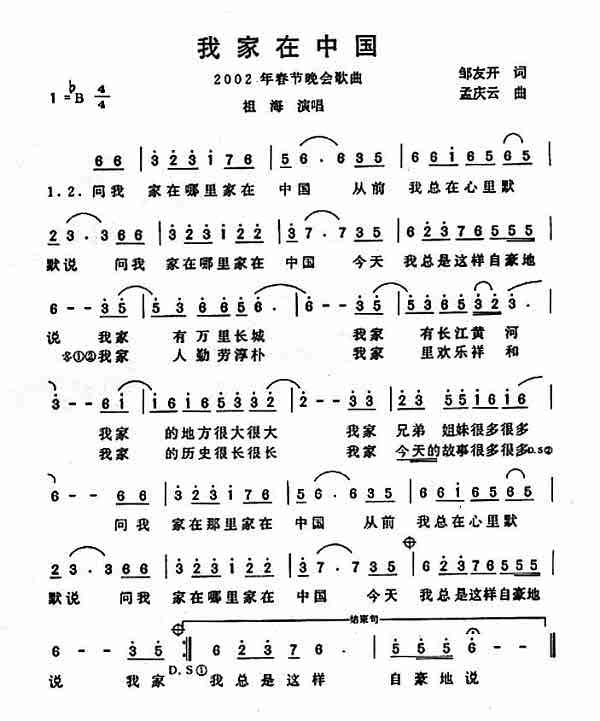 我家在中国
2002年春节晚会歌曲
邹友开 词
1=♭B 4/4
孟庆云 曲
祖海 演唱
66 | 323176 | 56.635 | 6616565 |
1.2.问我 家在哪里家在 中国 从前 我总在心里默
23.366 | 323122 | 37.735 | 62376555 |
默说 问我 家在哪里家在 中国 今天 我总是这样自豪地
说 我家 有万里长城 我家 有长江黄河
※①②我家 人勤劳淳朴 我家 里欢乐祥和
我家 的地方很大很大 我家 兄弟 姐妹很多很多
我家 的历史很长很长 我家 今天的故事很多很多D.S②
6--66 | 323122 | 56.635 | 6616565 |
问我 家在那里家在 中国 从前 我总在心里默
23.366 | 323122 | 37.735 | 62376555 |
默说 问我 家在哪里家在 中国 今天 我总是这样自豪地
结束句
6--35 :‖ 62376- | 5556-- ‖
D.S①
说 我家 我总是这样 自豪地说